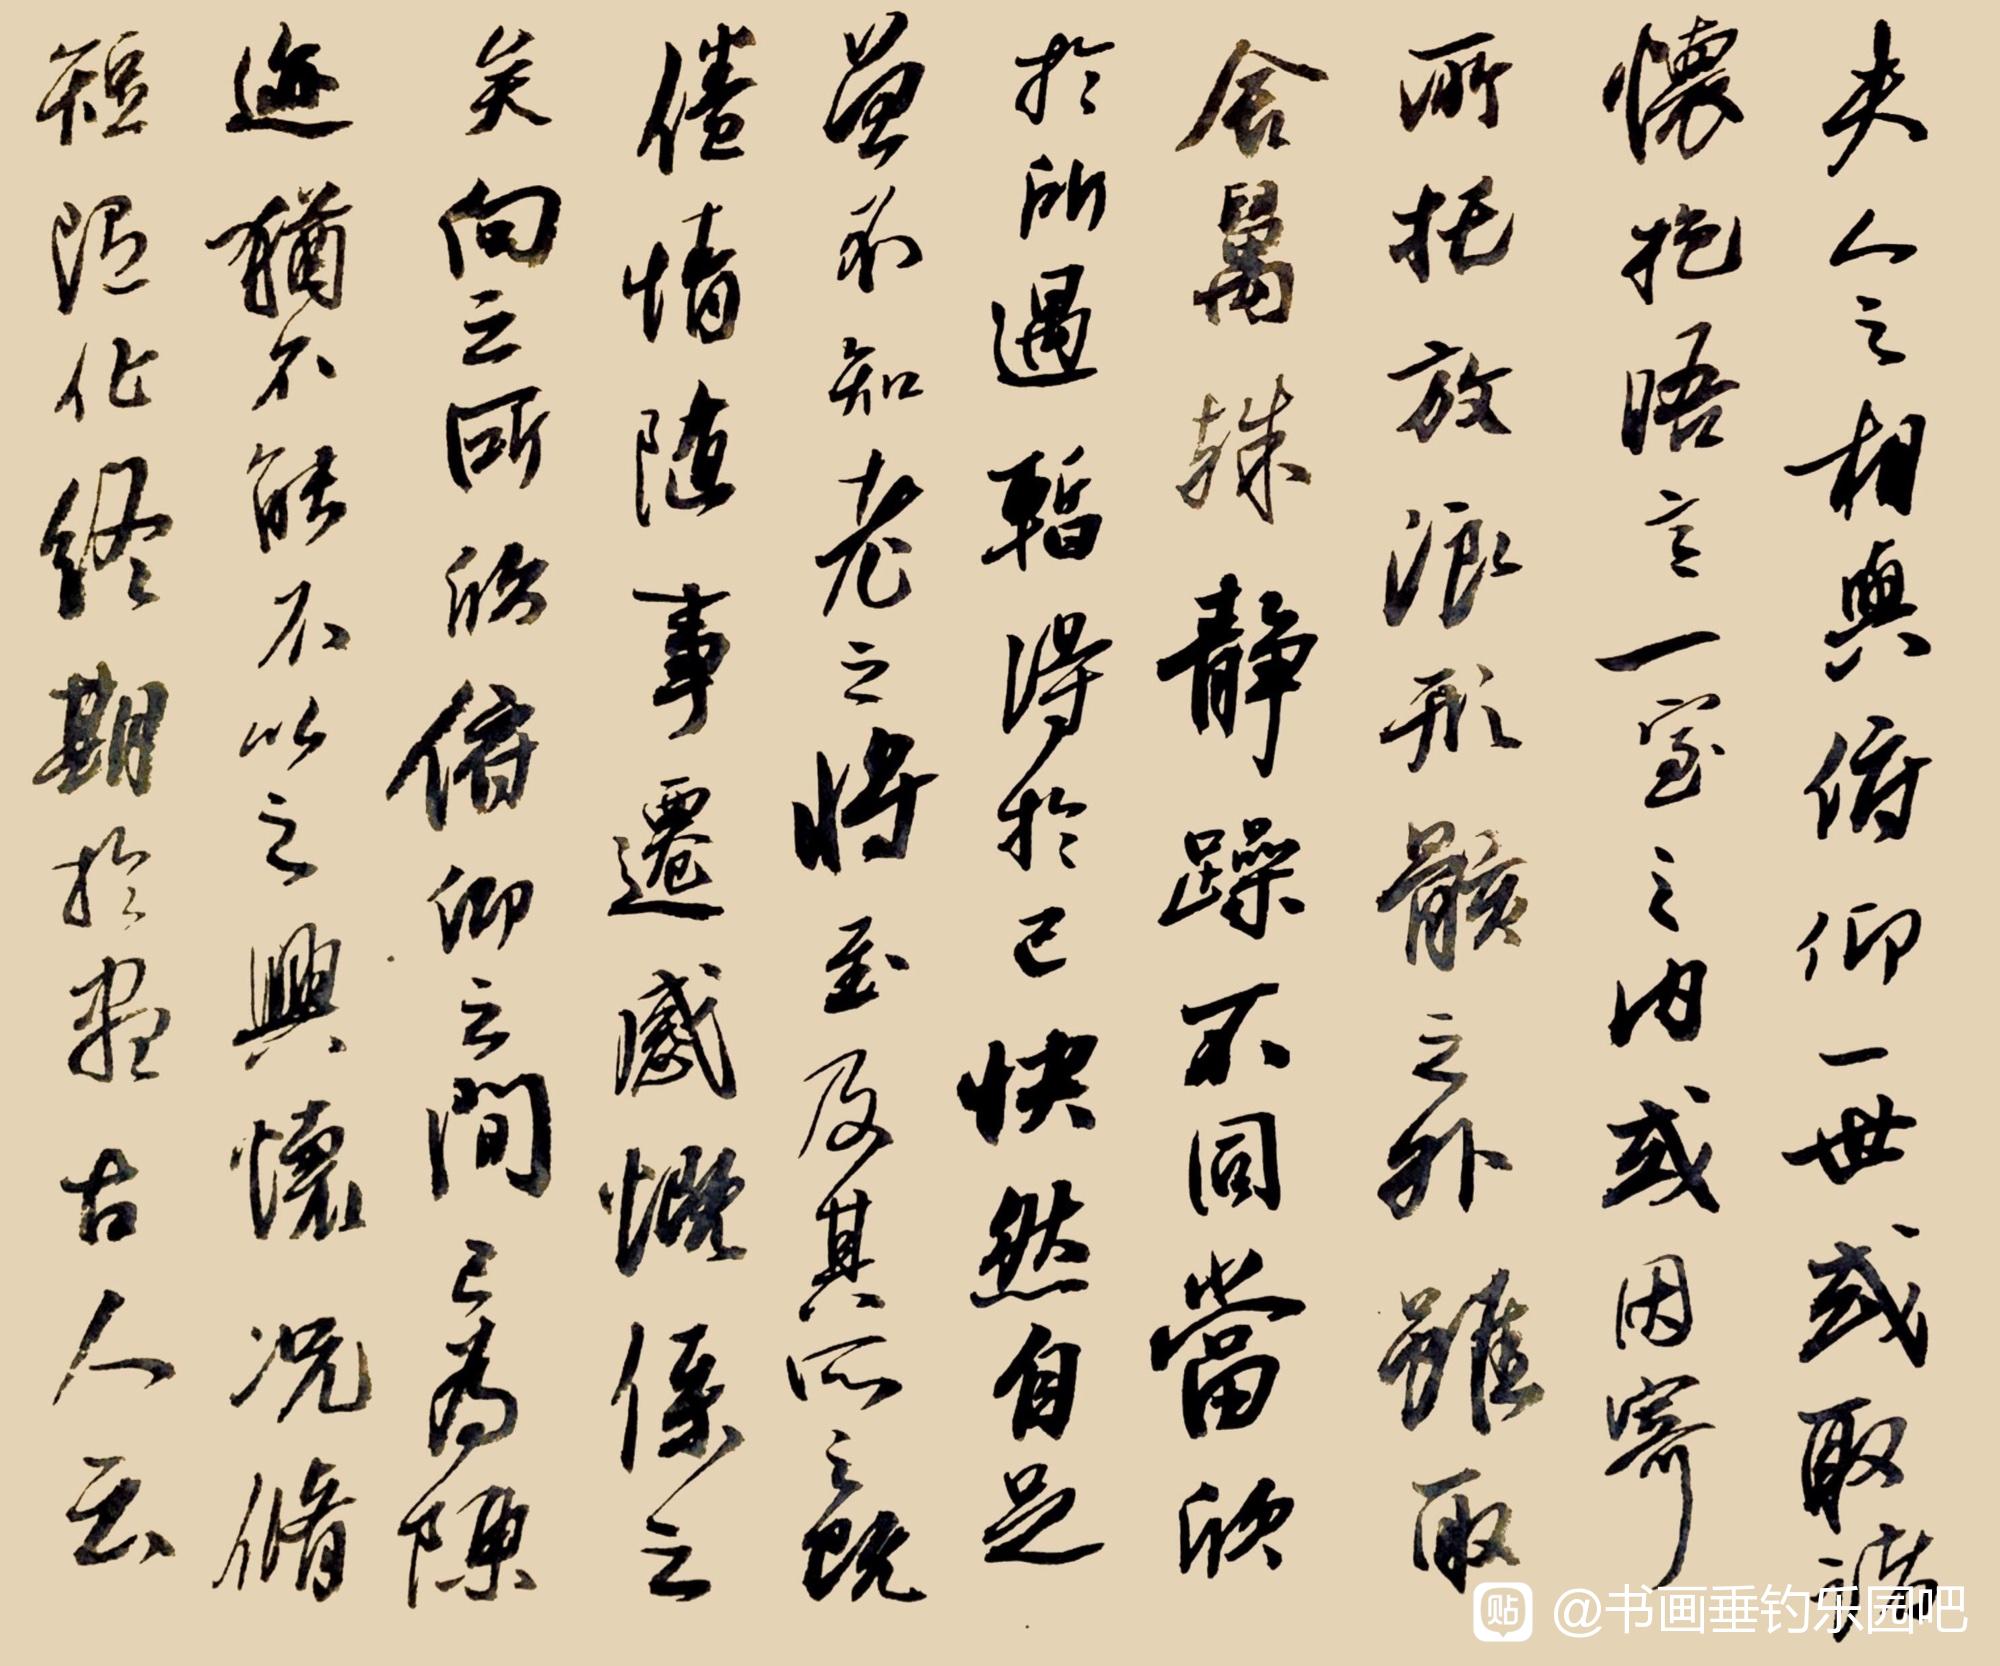 夫人之相與俯仰一世或取諸
懷抱晤言一室之內或因寄
所托放浪形骸之外雖取
舍萬殊靜躁不同當欣
於所遇暫得於己快然自足
曾不知老之將至及其所之既
倦情随事遷感慨係之
矣向之所欣俯仰之間已為陳
迹猶不能不以之興懷况脩
短随化終期於盡古人云
贴 @书画垂钓乐园吧